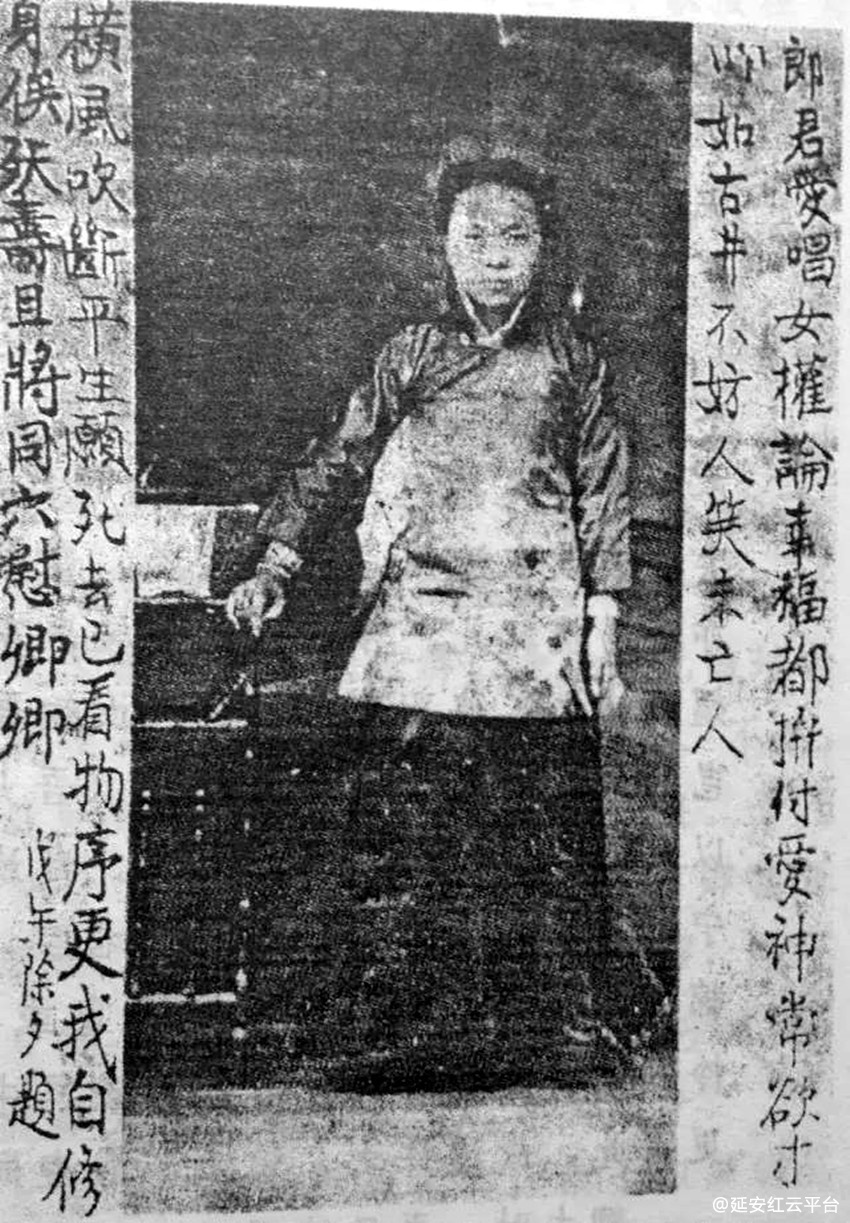 郎君愛唱女權論幸福都拚付愛神常欲寸
心如古井不妨人笑未亡人
橫風吹斷平生願死去已看物序更我自修
身俟殀壽且將同穴慰卿卿
戊午除夕題
@延安红云平台